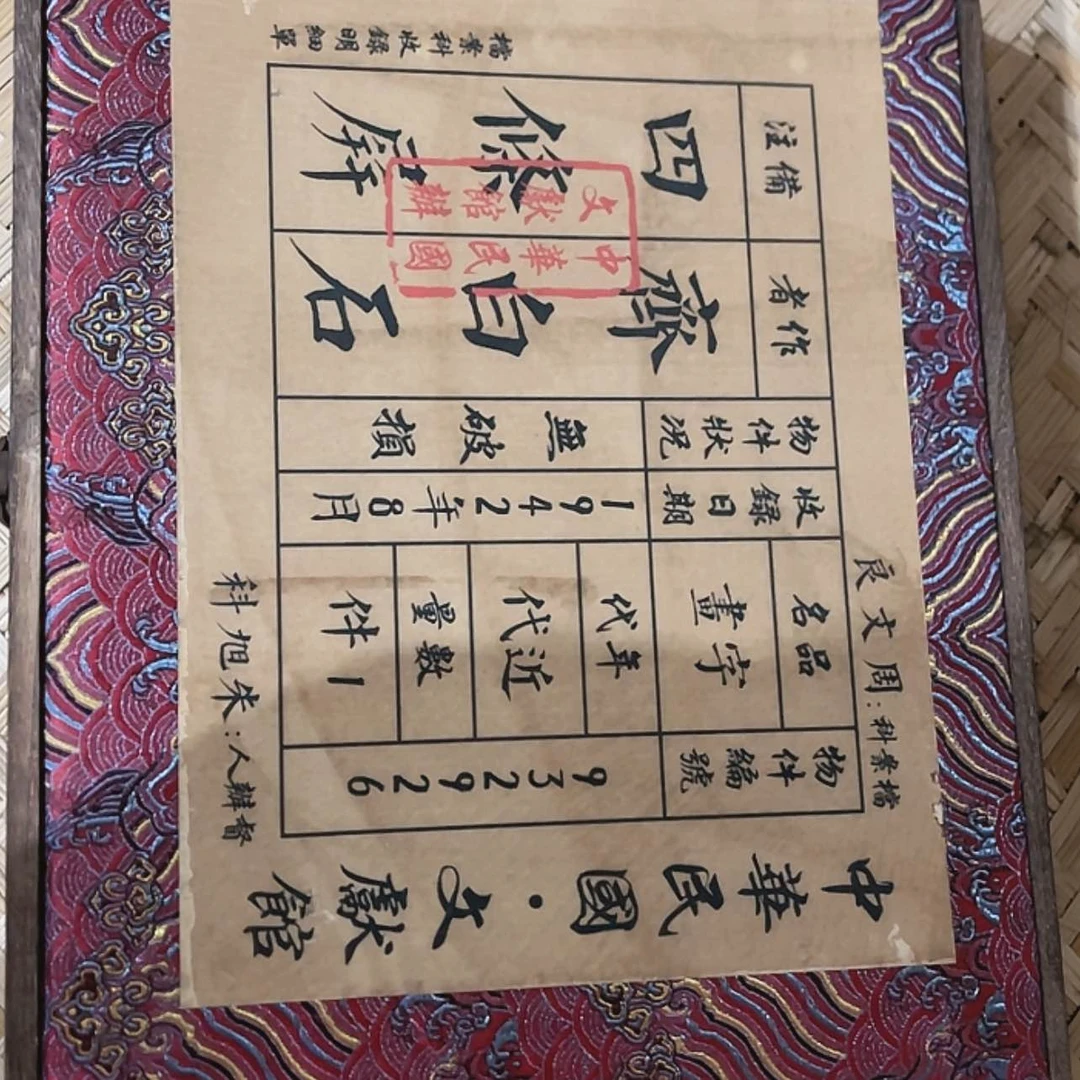 中華民國·文獻館
檔案科:周文良
物件編號
932926
品名
字畫
年代
近代
數量
1件
收錄日期
1942年8月
物件狀況
無破損
作者
齊白石
備注
四條屏
中華民國
文獻館辦
督辦人:朱旭科
檔案科收錄明細單